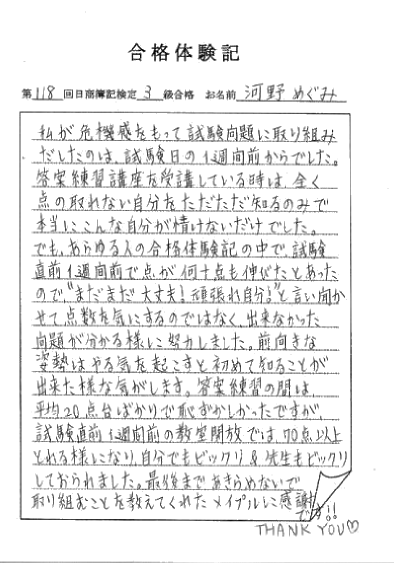 合格体験記
第118回日商簿記検定3級合格 お名前 河野 めぐみ
私が危機感をもって試験問題に取り組み
だしたのは、試験日の1週間前からでした。
答案練習講座を受講している時は、全く
点の取れない自分をただただ知るのみで
本当にこんな自分が情けないだけでした。
でも、あらゆる人の合格体験記の中で、試験
直前1週間前で点が何十点も伸びたとあった
ので、"まだまだ大丈夫!頑張れ自分!"と言い向か
せて点数を気にするのではなく、出来なかった
問題が分かる様に努力しました。前向きな
姿勢はやる気を起こすと初めて知ることが
出来た様な気がします。答案練習の間は、
平均20点台ばかりで恥ずかしかったですが、
試験直前1週間前の教室開放では、70点以上
とれる様になり、自分でもビックリ&先生もビックリ
しておられました。最後まであきらめないで
取り組むことを教えてくれたメイプルに感謝
です!!
THANK YOU♡